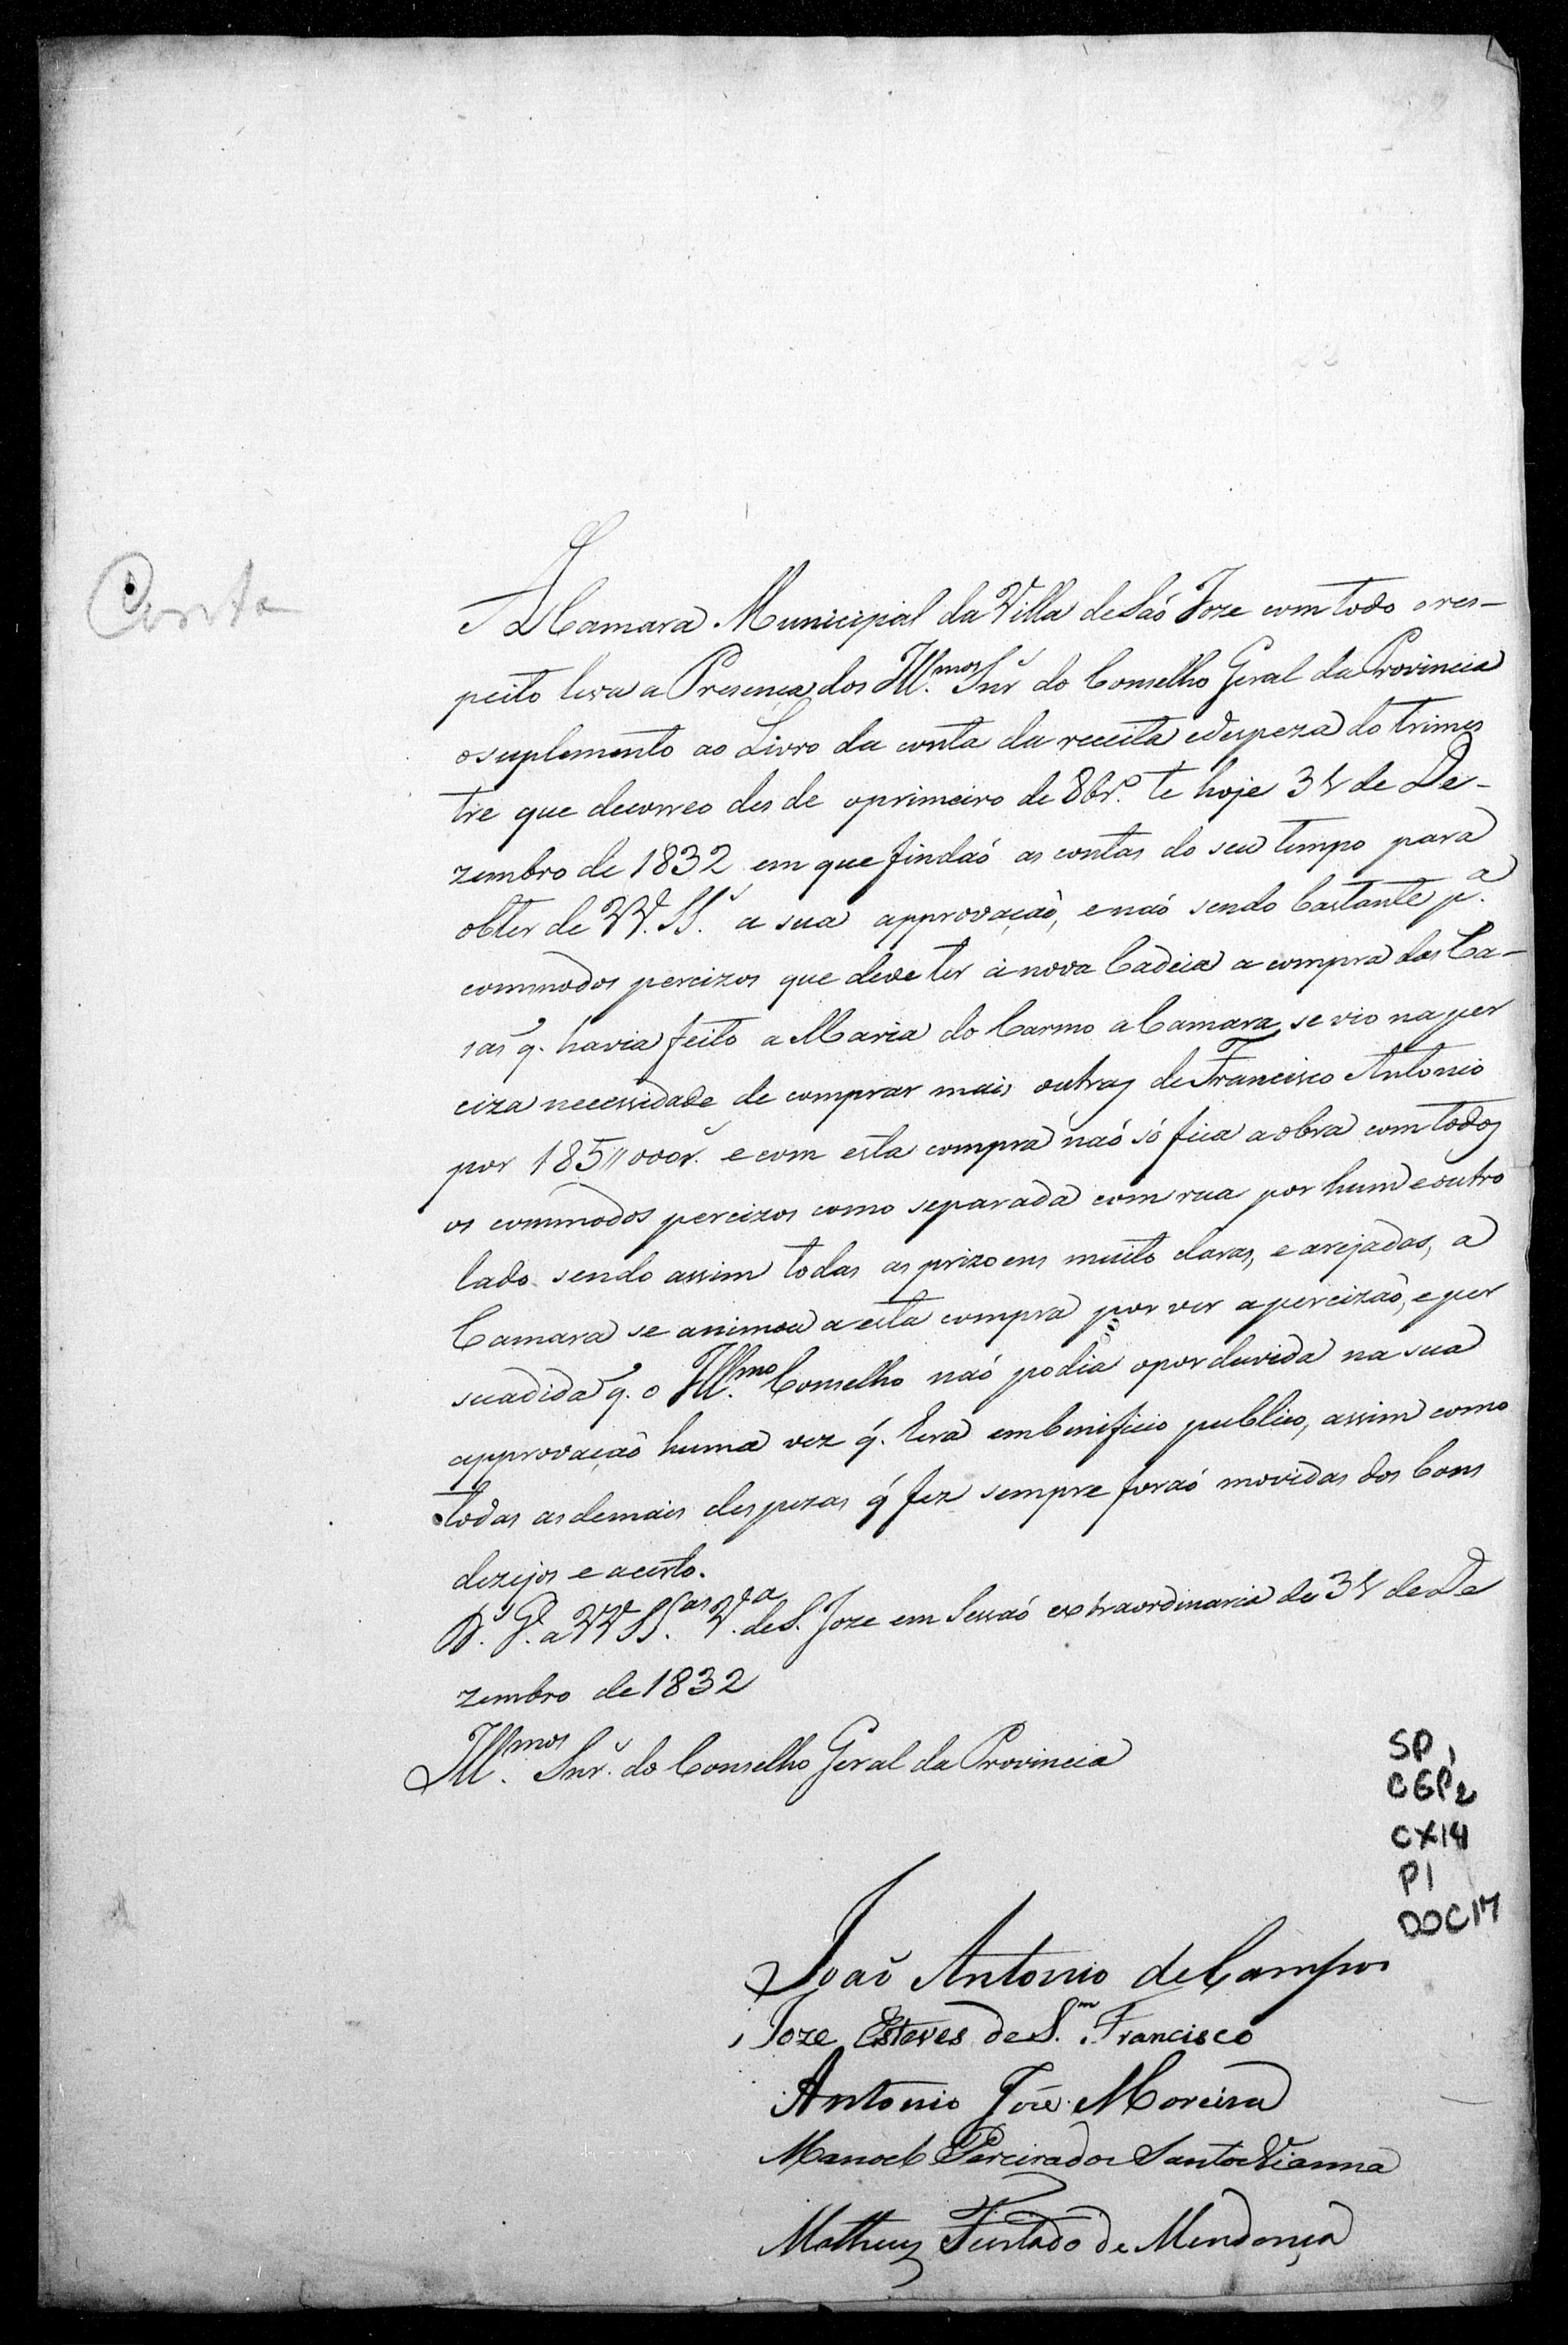 Conta
A Camara Municipal da Villa de Saõ Joze com todo o res-
peito leva a Presença dos Ill.mos Snr̃ do Conselho Geral da Provincia
o suplemento ao Livro da conta da receita e despeza do trimes
tre que decorreo des de o primeiro de 8br.º te hoje 31 de De-
zembro de 1832 em que findaõ as contas do seu tempo para
obter de VV. SS.ˢ a sua approvaçaõ, e naõ sendo bastante p.ª
commodos percizos que deve ter a nova Cadeia a compra das Ca-
sas q. havia feito a Maria do Carmo a Camara se vio na per
ciza necessidade de comprar mais outras de Francisco Antonio
por 185〃000r̃. e com esta compra naõ só fica a obra com todos
os commodos percizos como separada com rua por hum e outro
lado sendo assim todas as prizoens muito claras, e arejadas, a
Camara se animou a esta compra por ver a percizaõ, e per
suadida q. o Ill.mo Conselho naõ podia opor duvida na sua
approvaçaõ huma vez q. hera em benificio publico, assim como
todas as demais despezas q̃ fez sempre foraõ movidas dos bons
dezejos e acerto.
D.ˢ G.ᵉ a VV SS.as V.ª de S. Joze em Sessaõ extraordinaria de 31 de De
zembro de 1832
Ill.mos Snr̃. do Conselho Geral da Provincia
SP1
CGP2
CX14
P1
DOC17
Joaõ Antonio de Campos
Joze Esteves de S.m Francisco
Antonio Joze Moreira
Manoel Pereira dos Santos Vianna
Matheus Furtado de Mendonça